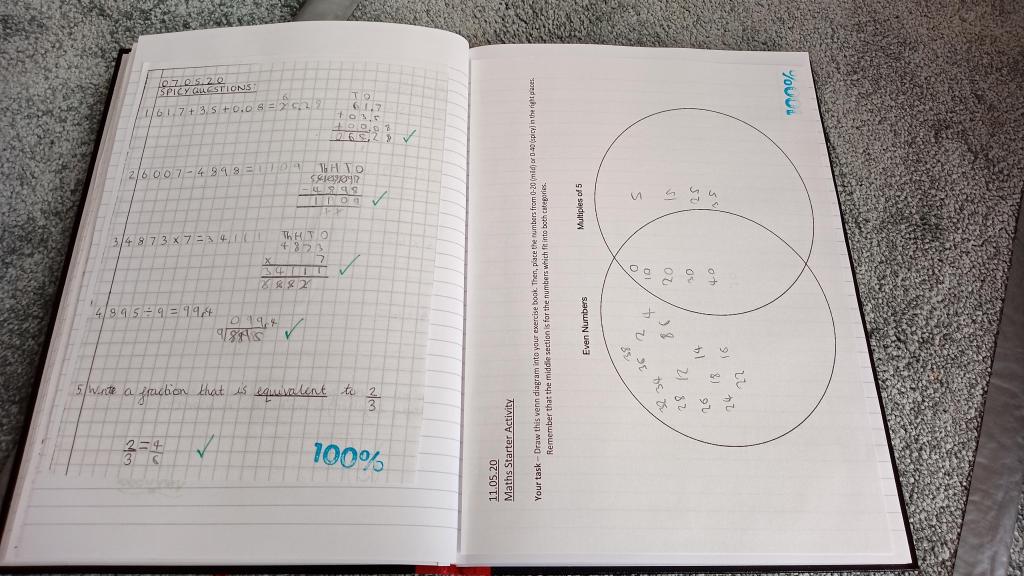 07.05.20
SPICY QUESTIONS:
T O
6 1,7
+ 0 3,5
+ 0 0,0 8
2 6 5,2 8
2 6 0 0 7 - 4 8 9 8 = 1 1 0 9
Th H T O
- 4 8 9 8
1 1 0 9
3 4 8 7 3 x 7 = 3 4 1 1 1
Th H T O
4 8 7 3
x 7
3 4 1 1 1
4 8 9 5 ÷ 9 = 99,4
0 9 9,4
5 Write a fraction that is equivalent to 2/3
2/3 = 4/6
100%
11.05.20
Maths Starter Activity
Your task – Draw this venn diagram into your exercise book. Then, place the numbers from 0-20 (mild) or 0-40 (spicy) in the right places.
Remember that the middle section is for the numbers which fit into both categories.
Even Numbers
Multiples of 5
38
32 34 36 2 4
28 12 14 8 6
26 18 16
24 22
0
10
20
30
40
5
15
25
35
100%